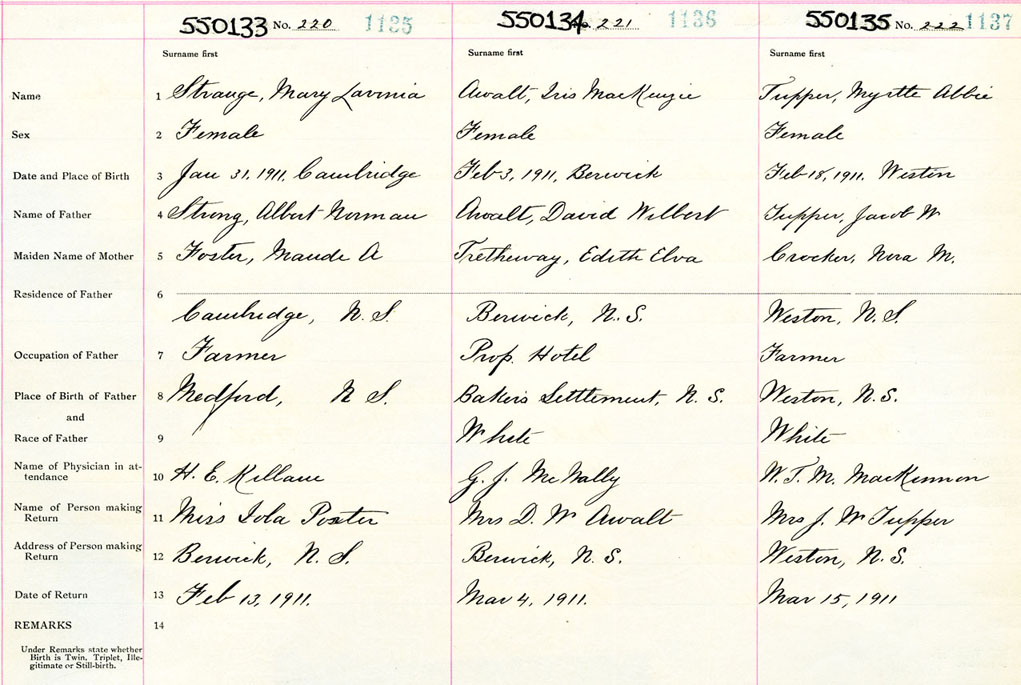 550133 No. 220 1135
550134 No. 221 1136
550135 No. 222 1137
Surname first Surname first Surname first
Name 1 Strange, Mary Lavinia Awalt, Iris MacKenzie Tupper, Myrtle Abbie
Sex 2 Female Female Female
Date and Place of Birth 3 Jan 31, 1911, Cambridge Feb 3, 1911, Berwick Feb 18, 1911, Weston
Name of Father 4 Strong, Albert Norman Awalt, David Wilbert Tupper, Jacob W
Maiden Name of Mother 5 Foster, Maude A Tretheway, Edith Elva Crocker, Nora M.
Residence of Father 6
Cambridge, N.S. Berwick, N.S. Weston, N.S.
Occupation of Father 7 Farmer Prop. Hotel Farmer
Place of Birth of Father 8 Medford, N S. Bakers Settlement, N.S. Weston, N.S.
and
Race of Father 9 White White
Name of Physician in at-
tendance 10 H. E. Killam G. J. McNally W. T. M. MacKinnon
Name of Person making
Return 11 Miss Iola Mrs D. W Awalt Mrs J. W Tupper
Address of Person making
Return 12 Berwick, N.S. Berwick, N.S. Weston, N.S.
Date of Return 13 Feb 13, 1911. Mar 4, 1911. Mar 15, 1911
REMARKS 14
Under Remarks state whether
Birth is Twin, Triplet, Ille-
gitimate or Still-birth.